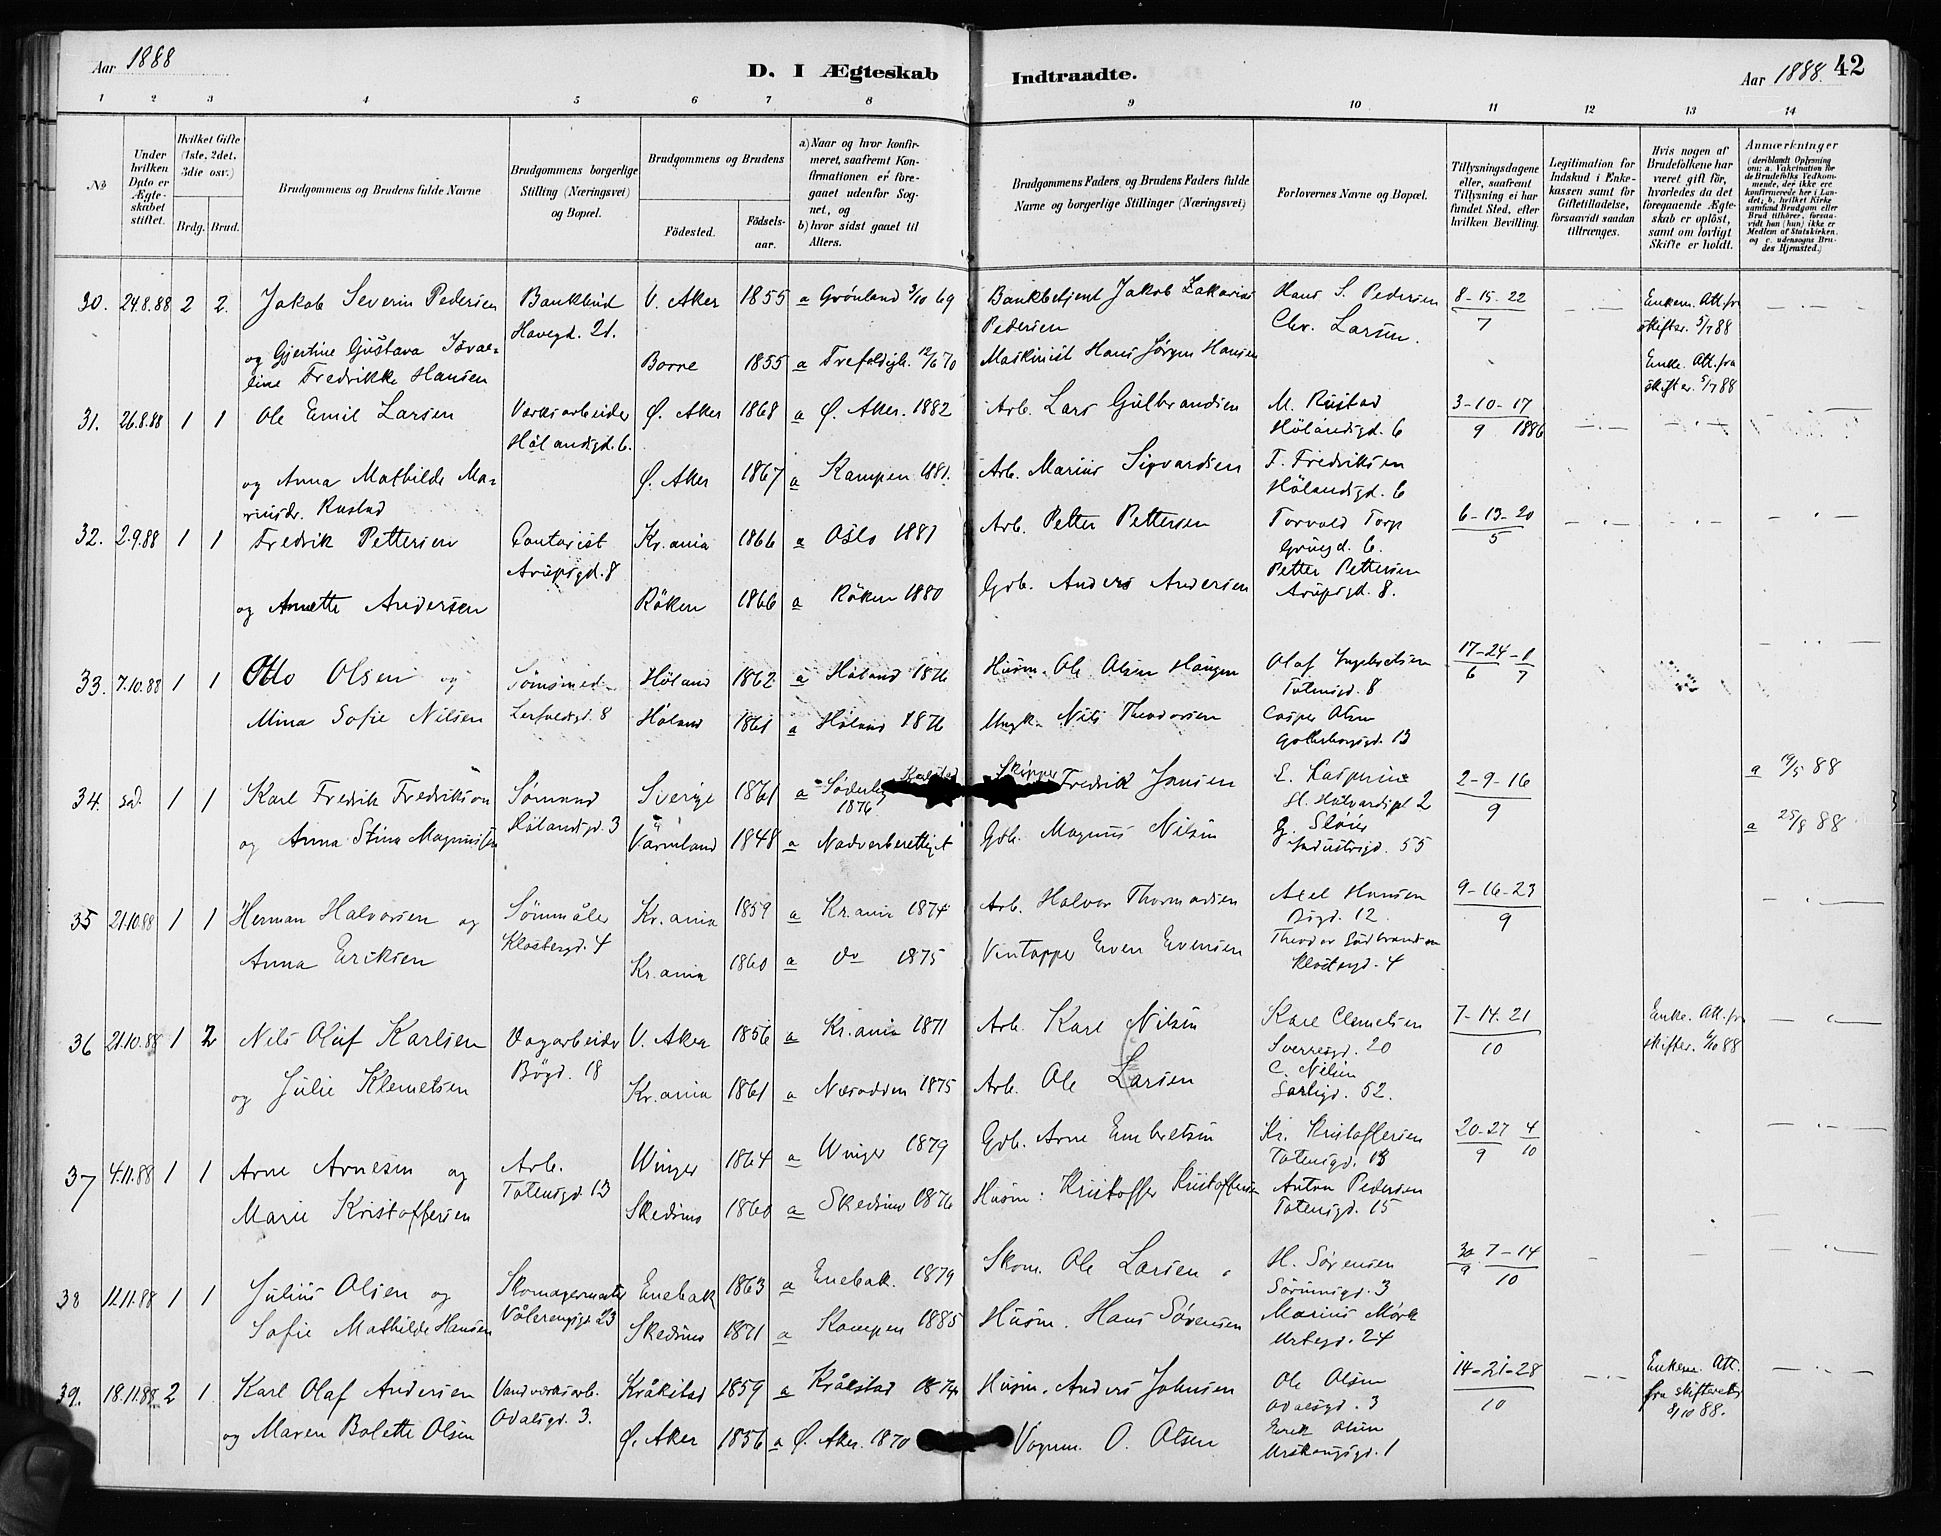 Aar 1888
D. I Ægteskab Indtraadte.
Aar 1888. 42
1 2 3 4 5 6 7 8 9 10 11 12 13 14
No
Under hvilken Dato er Ægte-skabet stiftet.
Hvilket Gifte (1ste, 2det, 3die osv.)
Brdg. Brud.
Brudgommens og Brudens fulde Navne
Brudgommens borgerlige Stilling (Næringsvei) og Bopæl.
Brudgommens og Brudens
Födested. Födsels-aar.
a) Naar og hvor konfir-meret, saafremt Kon-firmationen er fore-gaaet udenfor Sog-net, og
b) hvor sidst gaaet til Alters.
Brudgommens Faders og Brudens Faders fulde Navne og borgerlige Stillinger (Næringsvei)
Forlovernes Navne og Bopæl.
Tillysningsdagene eller, saafremt Tillysning ei har fundet Sted, efter hvilken Bevilling.
Legitimation for Indskud i Enke-kassen samt for Giftetilladelse, forsaavidt saadan tiltrænges.
Hvis nogen af Brudefolkene har været gift för, hvorledes da det foregaaende Ægte-skab er oplöst, samt om lovligt Skifte er holdt.
Anmærkninger (deriblandt Oplysning om: a. Vakcination for de Brudefolks Vedkom-mende, der ikke ere konfirmerede her i Lan-det; b. hvilket Kirke samfund Brudgom eller Brud tilhörer, forsaa-vidt han (hun) ikke er Medlem af Statskirken, og c. udensogns Bru-des Hjemsted.)
30. 24.8.88 2 2. Jakob Severin Pedersen Bankbud V. Aker 1855 a Grönland 3/10 69 Bankbetjent Jakob Zakarias Hans S. Pedersen 8-15-22 Enkem. Att. fra
Havegd. 21. Pedersen Chr. Larsen. 7 skifter. 5/7 88
og Gjertine Gustava Israe- Borre 1855 a Trefoldigh. 12/6 70 Maskinist Hans Jörgen Hansen Enke. Att. fra
line Fredrikke Hansen skifter. 5/7 88
31. 26.8.88 1 1 Ole Emil Larsen Værksarbeider Ø. Aker 1868 a Ø. Aker. 1882 Arb. Lars Gulbrandsen M. Rustad 3-10-17
Hölandsgd. 6. Hölandsgd. 6 9 1886
og Anna Mathilde Ma- Ø. Aker 1867 a Kampen 1881. Arb. Marius Sigvardsen F. Fredriksen
riusdr. Rustad Hölandsgd. 6
32. 2.9.88 1 1 Fredrik Pettersen Contorist Kr.ania 1866 a Oslo 1881 Arb. Petter Pettersen Torvald Torp 6-13-20
Arupsgd. 8 Grüsgd. 6. 5
og Annette Andersen Röken 1866 a Röken 1880 Gdb. Anders Andersen Petter Pettersen
Arupsgd. 8.
33. 7.10.88 1 1 Otto Olsen og Tömsmed Höland 1862 a Höland 1876 Husm. Ole Olsen Haugen Olaf Ingebretsen 17-24-1
Totensgd. 8 6 7
Mina Sofie Nilsen Leirfaldsgd. 8 Höland 1861 a Höland 1876 Nils Theodorsen Casper Olsen
Gotheborgsgd. 13
34. sad. 1 1 Karl Fredrik Fredrikson Sömand Sverige 1861 a Söderby Karlstad Skipper Fredrik Jonsen E. Kasperine 2-9-16 a 19/5 88
Hölandsgd. 3 1876 St. Halvardspl 2 9
og Anna Stina Magnussen Värmland 1848 a Nadverberettiget Gdb. Magnus Nilsen G. Slöier a 25/8 88
Industrigd. 55
35 21.10.88 1 1 Herman Halvorsen og Sömmåler Kr.ania 1859 a Kr.ania 1874 Arb. Halvor Thormodsen Axel Hansen 9-16-23
Bögd. 12. 9
Anna Eriksen Klostergd. 4 Kr.ania 1860 a do 1875 Vintapper Even Evensen Theodor Gudbrandsen
Klostergd. 4
36 21.10.88 1 2 Nils Olaf Karlsen Vogarbeider V. Aker 1856 a Kr.ania 1871 Arb. Karl Nilsen Karl Clemetsen 7-14-21 Enke. Att. fra
Bögd. 18 Sverresgd. 20 10 skifter. 6/10 88
og Julie Klemetsen Kr.ania 1861 a Næsodden 1875 Arb. Ole Larsen C. Nilsen
Sarligd. 52.
37 4.11.88 1 1 Arne Arnesen og Arb. Winger 1864 a Winger 1879 Gdb. Arne Embretsen Kr. Kristoffersen 20-27 4
Totensgd. 13 Totensgd. 13 9 10
Marie Kristoffersen Skedsmo 1860 a Skedsmo 1876 Husm. Kristoffer Kristoffersen Anton Pedersen
Totensgd. 15
38 11.11.88 1 1 Julius Olsen og Skomagermester Enebak 1863 a Enebak. 1879 Skom. Ole Larsen H. Sørensen 30 7-14
Vålerengsgd 23 Sörumsgd. 3 9 10
Sofie Mathilde Hansen Skedsmo 1871 a Kampen 1885 Husm. Hans Sörensen Marius Mörk
Urtegd. 24
39. 18.11.88 2 1 Karl Olaf Andersen Vandværksarb. Kråkstad 1859 a Kråkstad 1874 Husm. Anders Johnsen Ole Olsen 14-21-28 Enkem. Att.
Odalsgd. 3. Odalsgd. 3 10 fra skifteretten
og Maren Bolette Olsen Ø. Aker 1856 a Ø. Aker. 1870 Vognm. O. Olsen Erik Olsen 8/10 88.
Urskougsgd. 1